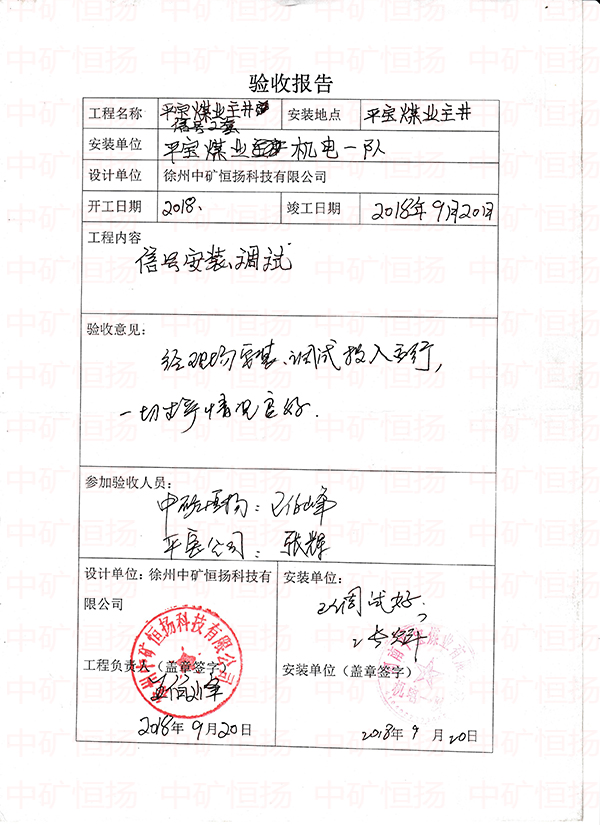 验收报告
工程名称 平宝煤业主井信号2套 安装地点 平宝煤业主井
安装单位 平宝煤业机电一队
设计单位 徐州中矿恒扬科技有限公司
开工日期 2018、 竣工日期 2018年9月20日
工程内容
信号安装、调试
验收意见:
经现场安装、调试投入运行,
一切情况良好.
参加验收人员:
中矿恒扬:
平宝公司: 张辉
设计单位:徐州中矿恒扬科技有
限公司
安装单位:
已调试好,
徐州中矿恒扬科技有限公司
工程负责人(盖章签字)
安装单位(盖章签字)
2018年9月20日
2018年9月20日
中矿恒扬